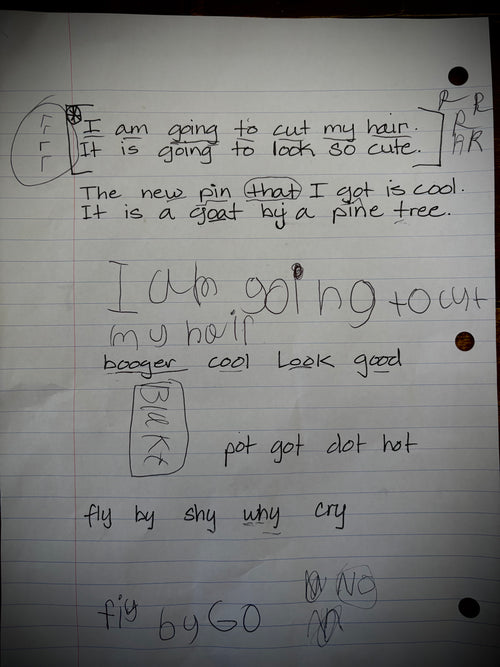 I am going to cut my hair.
It is going to look so cute.
r
r
r
r
R R
R
AR
The new pin that I got is cool.
It is a goat by a pine tree.
I am going to cut
my hair
booger cool look good
pot got dot hot
fly by shy why cry
fly by GO
NO